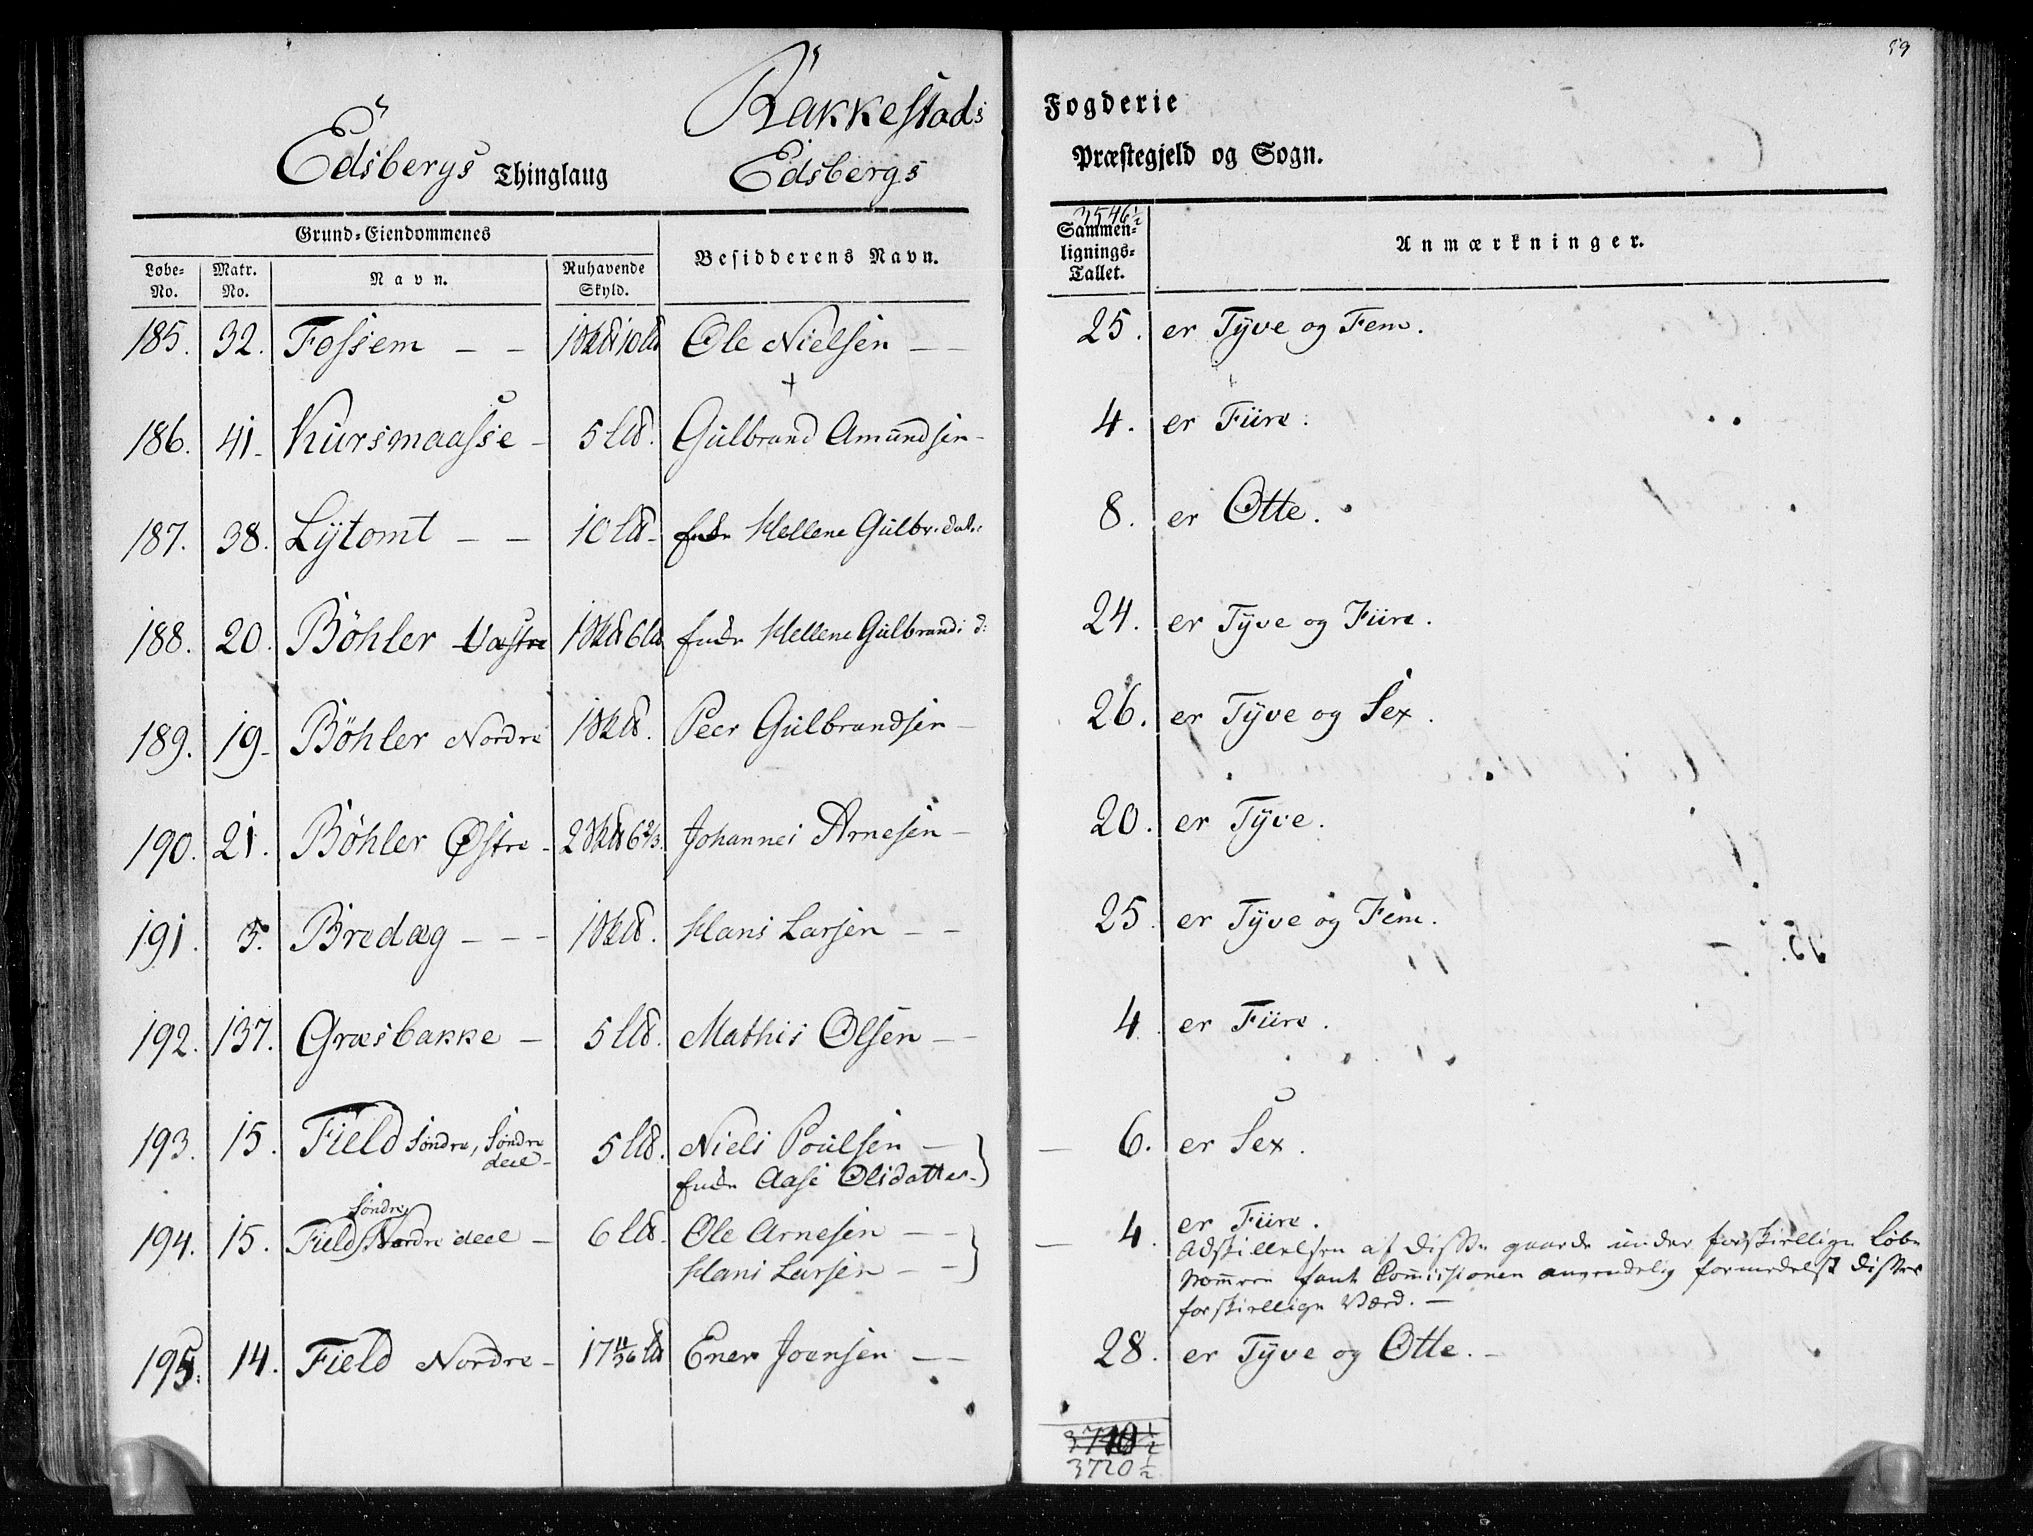 59
Rakkestads Fogderie
Edsbergs Thinglaug Edsbergs Præstegjeld og Sogn.
Grund-Eiendommenes
Løbe-No. Matr. No. Navn. Nuhavende Skyld. Besidderens Navn. 3546½ Sammen-lignings-Tallet. Anmærkninger.
185. 32. Fossem — — 1 Sk℔ 10 L℔ Ole Nielsen — — 25. er Tÿve og Fem.
186. 41. Kursmaasse - 5 L℔. Gulbrand Amundsen - 4. er Fiire.
187. 38. Lÿtomt — — 10 L℔ - Enke Hellene Gulbr:dat: 8. er Otte.
188. 20. Böhler Væstre 1 Sk℔ 6 L℔ Enke Hellene Gulbrands d: 24. er Tÿve og Fiire.
189. 19. Böhler Nordre 1 Sk℔. Peer Gulbrandsen — 26. er Tÿve og Sex.
190. 21. Böhler Østre - 2 Sk℔ 6 2/3. Johannes Arnesen — 20. er Tÿve.
191. 5. Bredæg — — - 1 Sk℔. Hans Larsen — — 25. er Tÿve og Fem.
192. 137. Græsbakke — 5 L℔. Mathis Olsen — - 4. er Fiire.
193. 15. Field Søndre, Søndre deel - 5 L℔. Niels Poulsen —
Enke Aase Olsdatter - 6. er Sex.
194. 15. Field Søndre, Nordre deel — 6 L℔. Ole Arnesen — -
Hans Larsen — — 4. er Fiire.
Adskillelsen af disse gaarde under forskiellige Løbe
Nommere fant Commissionen nødvendelig formedelst disses
forskiellige Værd. —
195. 14. Field Nordre - 17 11/36 L℔ Ener Joensen — — 28. er Tÿve og Otte. -
3720 ½